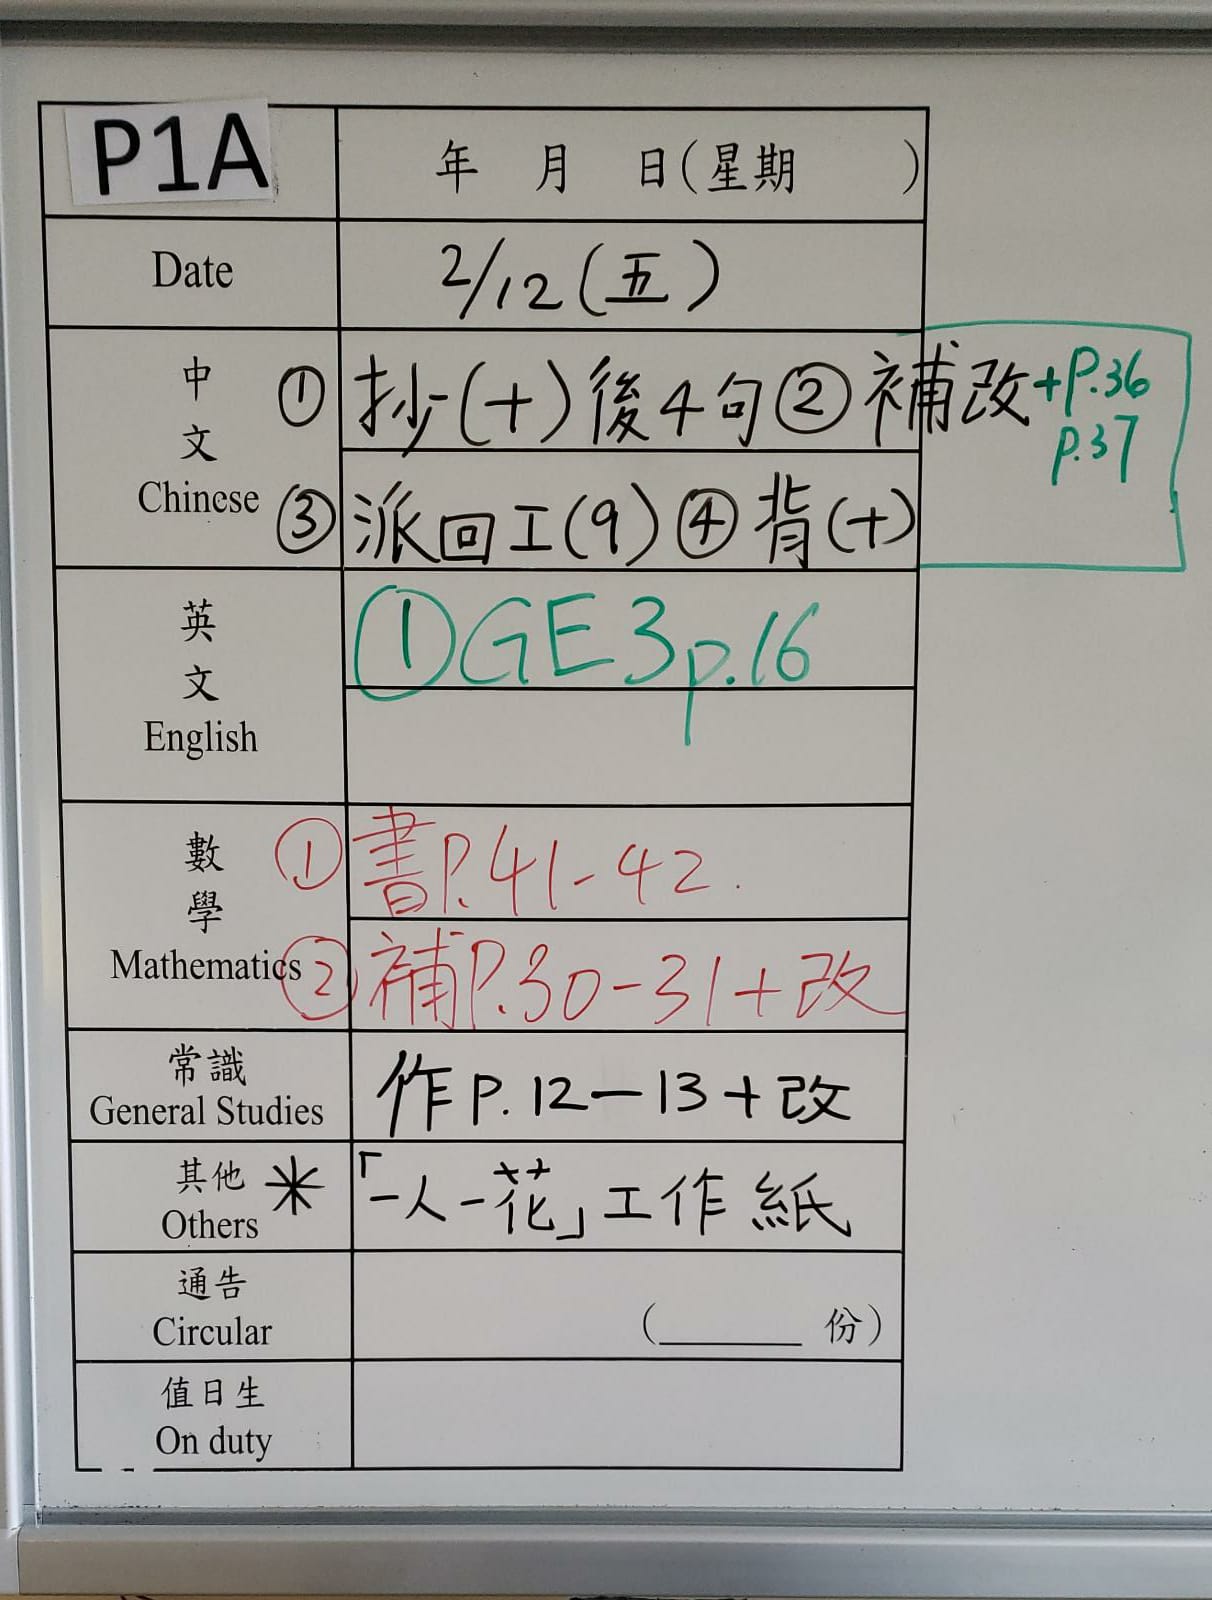 P1A
年 月 日(星期 )
Date
2/12(五)
中
文
Chinese
①抄(十)後4句②補改+P.36
p.37
③派回工(9)④背(十)
英
文
English
①GE3p.16
數
學
Mathematics
①書P.41-42.
②補P.30-31+改
常識
General Studies
作P.12-13+改
其他
Others
*「一人一花」工作紙
通告
Circular
(______ 份)
值日生
On duty